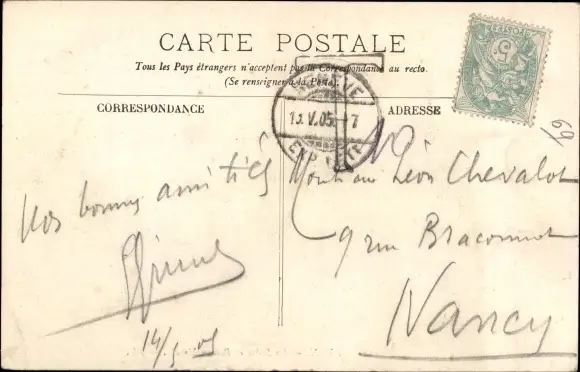 CARTE POSTALE
Tous les Pays étrangers n'acceptent pas la Correspondance au recto.
(Se renseigner à la Poste).
CORRESPONDANCE
ADRESSE
GENÈVE
13.V.05.-7
EXP. LETT
5
69
Nos bonnes amitiés
14/5 05
Monsieur Léon Chevalot
9 rue Braconnot
Nancy